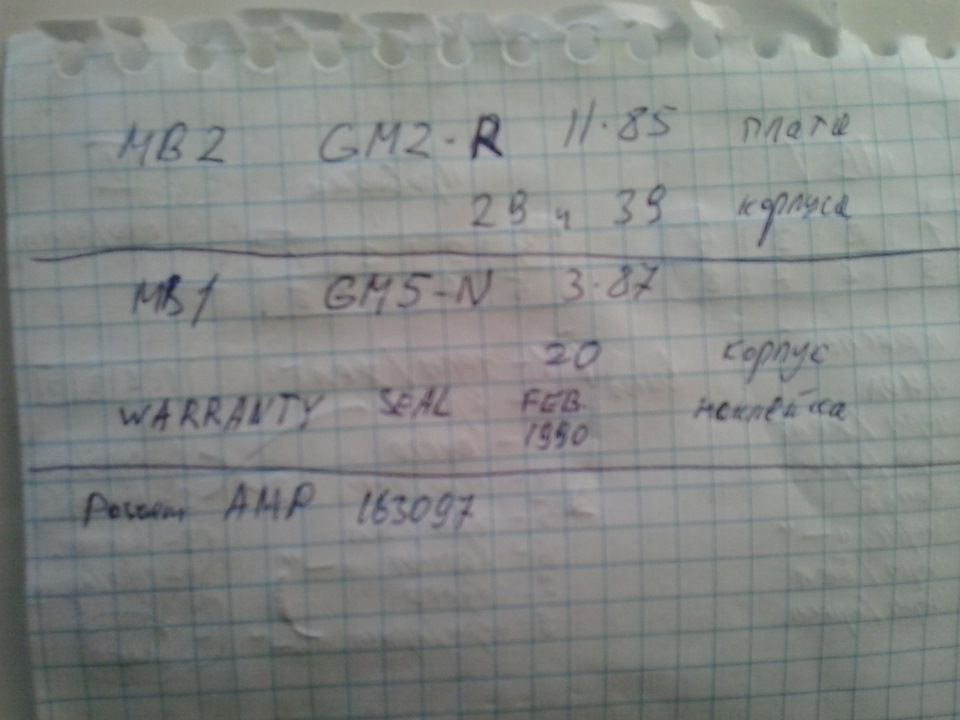 МВ2 GM2-R 11.85 плата
29 и 39 корпуса
МВ1 GM5-N 3.87
20 корпус
WARRANTY SEAL FEB. наклейка
1990
Разъем AMP 163097